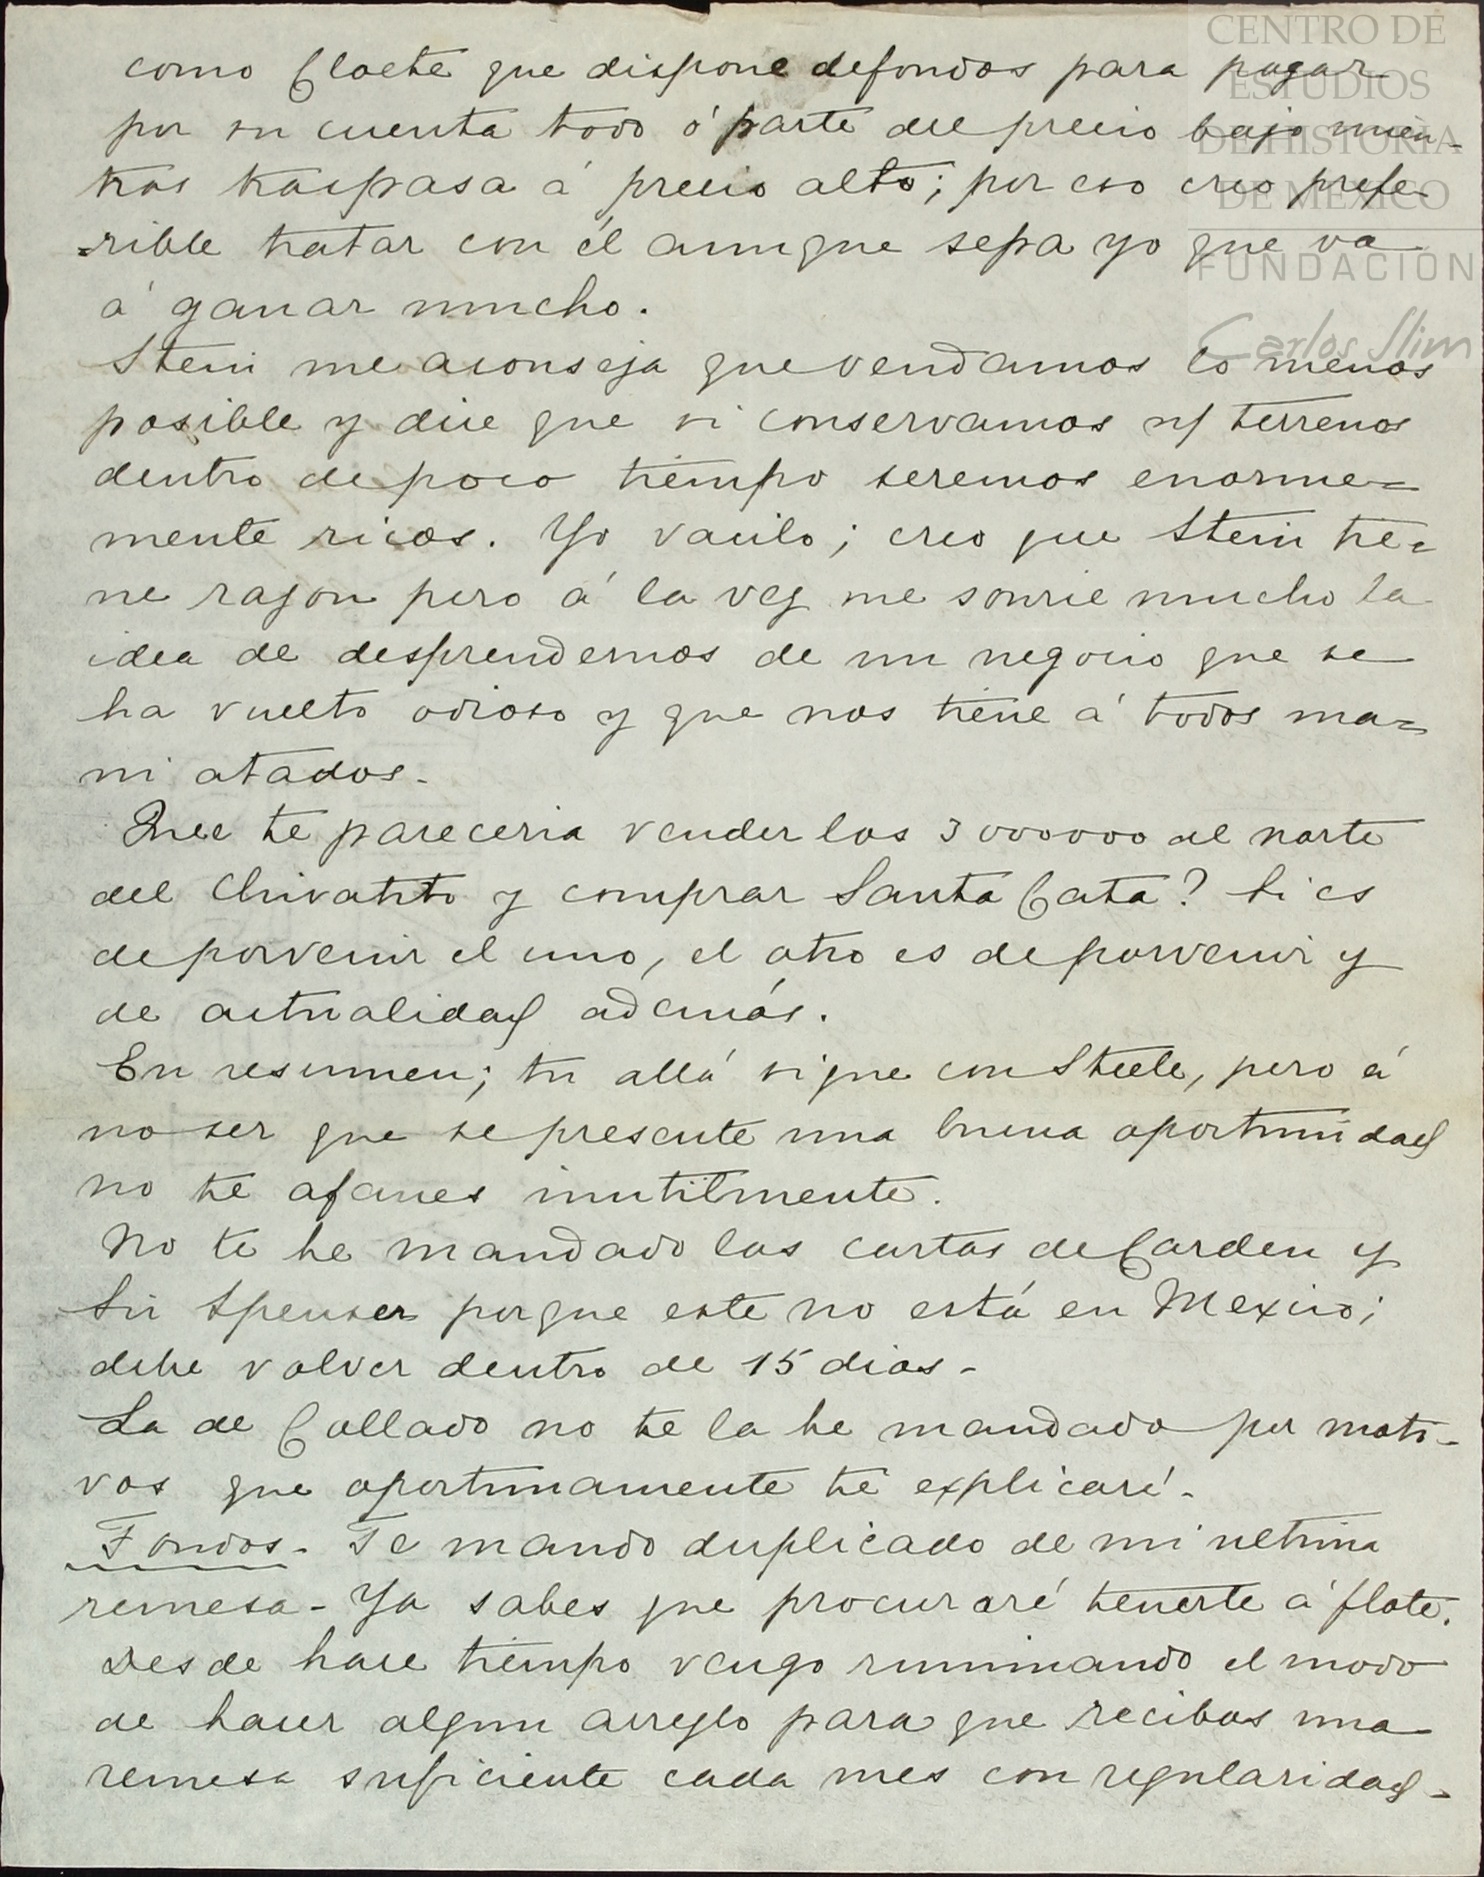 CENTRO DE
ESTUDIOS
DE HISTORIA
DE MÉXICO
FUNDACIÓN
Carlos Slim
como Cloete que dispone de fondos para pagar
por su cuenta todo ó parte del precio bajo mien-
tras traspasa á precio alto; por eso creo prefe-
=rible tratar con él aunque sepa yo que va
á ganar mucho.
Stein me aconseja que vendamos lo menos
posible y dice que si conservamos n/ terrenos
dentro de poco tiempo seremos enorme=
mente ricos. Yo vacilo; creo que Stein tie=
ne razon pero á la vez me sonrie mucho la
idea de desprendernos de un negocio que se
ha vuelto odioso y que nos tiene á todos ma=
ni atados.
Que te pareceria vender los 3000000 al norte
del Chivatito y comprar Santa Cata? Si es
de porvenir el uno, el otro es de porvenir y
de actualidad además.
En resumen; tu allá sigue con Steele, pero á
no ser que se presente una buena oportunidad
no te afanes inutilmente.
No te he mandado las cartas de Carden y
Sir Spenser porque este no está en Mexico;
debe volver dentro de 15 dias-
La de Collado no te la he mandado por moti-
vos que oportunamente te explicaré-
Fondos- Te mando duplicado de mi ultima
remesa- Ya sabes que procuraré tenerte á flote.
Desde hace tiempo vengo ruminando el modo
de hacer algun arreglo para que recibas una
remesa suficiente cada mes con regularidad-